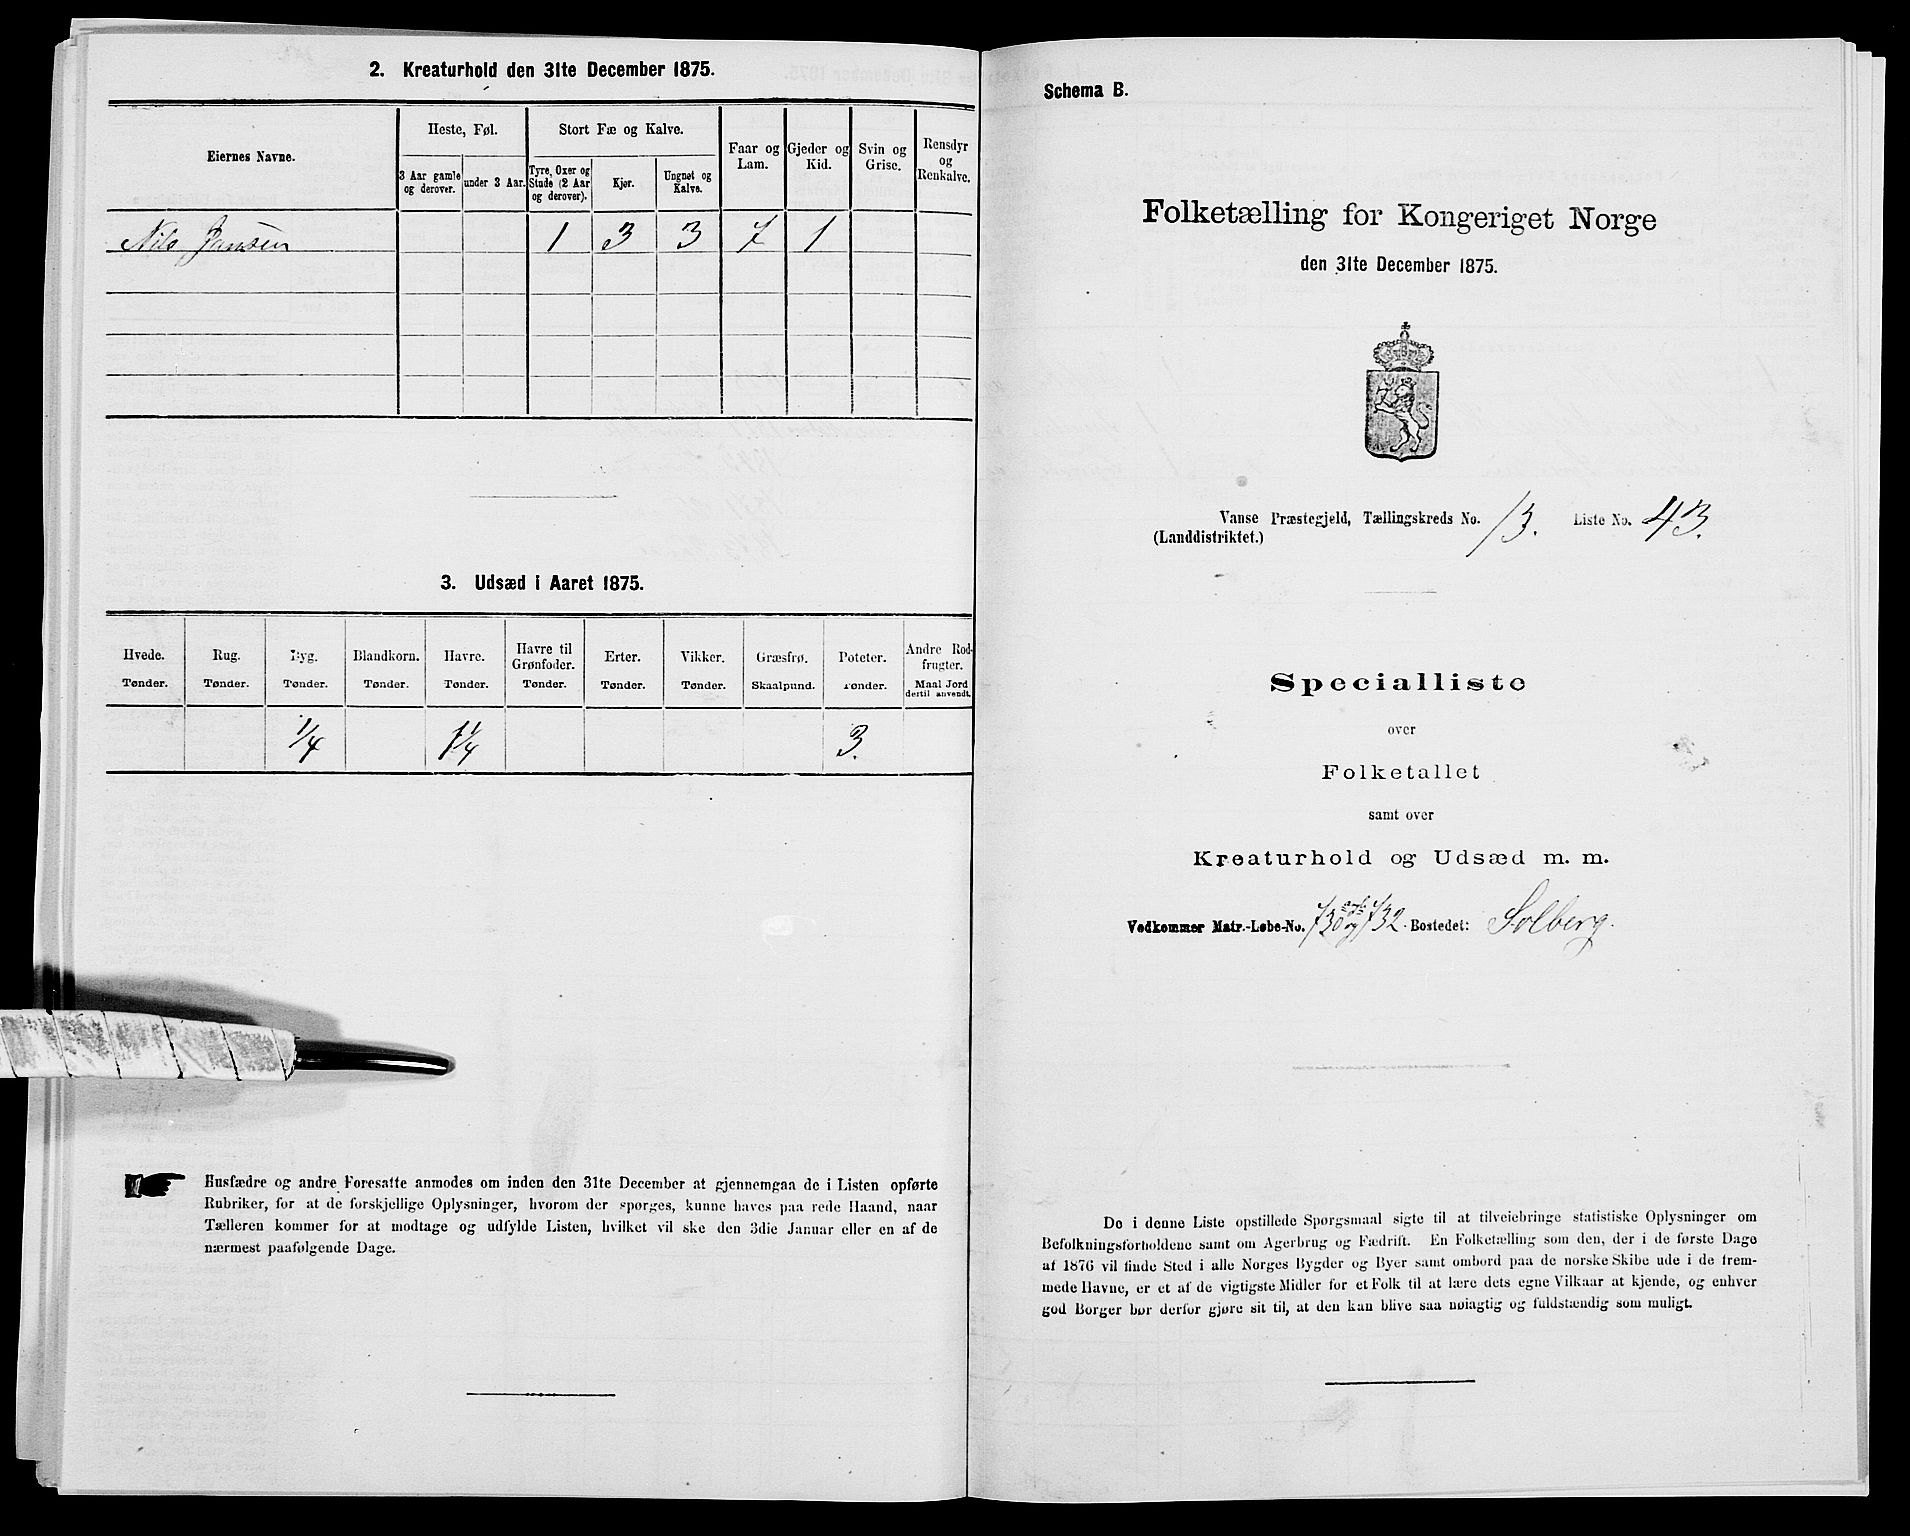 2. Kreaturhold den 31te December 1875.
Eiernes Navne.
Heste, Føl.
Stort Fæ og Kalve.
Faar og Lam.
Gjeder og Kid.
Svin og Grise.
Rensdyr og Renkalve.
3 Aar gamle og derover.
under 3 Aar.
Tyre, Oxer og Stude (2 Aar og derover).
Kjør.
Ungnøt og Kalve.
Nils Jansen 1 3 3 7 1
3. Udsæd i Aaret 1875.
Hvede. Rug. Byg. Blandkorn. Havre. Havre til Grønfoder. Erter. Vikker. Græsfrø. Poteter. Andre Rodfrugter.
Tønder. Tønder. Tønder. Tønder. Tønder. Tønder. Tønder. Tønder. Skaalpund. Tønder. Maal Jord dertil anvendt.
1/4 1 1/4 3.
Husfædre og andre Foresatte anmodes om inden den 31te December at gjennemgaa de i Listen opførte
Rubriker, for at de forskjellige Oplysninger, hvorom der spørges, kunne haves paa rede Haand, naar
Tælleren kommer for at modtage og udfylde Listen, hvilket vil ske den 3die Januar eller en af de
nærmest paafølgende Dage.
Schema B.
Folketælling for Kongeriget Norge
den 31te December 1875.
Vanse Præstegjeld, Tællingskreds No. 13. Liste No. 43.
(Landdistriktet.)
Specialliste
over
Folketallet
samt over
Kreaturhold og Udsæd m. m.
Vedkommer Matr.-Løbe-No. 730 og 732. Bostedet: Solberg.
De i denne Liste opstillede Spørgsmaal sigte til at tilveiebringe statistiske Oplysninger om
Befolkningsforholdene samt om Agerbrug og Fædrift. En Folketælling som den, der i de første Dage
af 1876 vil finde Sted i alle Norges Bygder og Byer samt ombord paa de norske Skibe ude i de frem-
mede Havne, er et af de vigtigste Midler for et Folk til at lære dets egne Vilkaar at kjende, og enhver
god Borger bør derfor gjøre sit til, at den kan blive saa nøiagtig og fuldstændig som muligt.